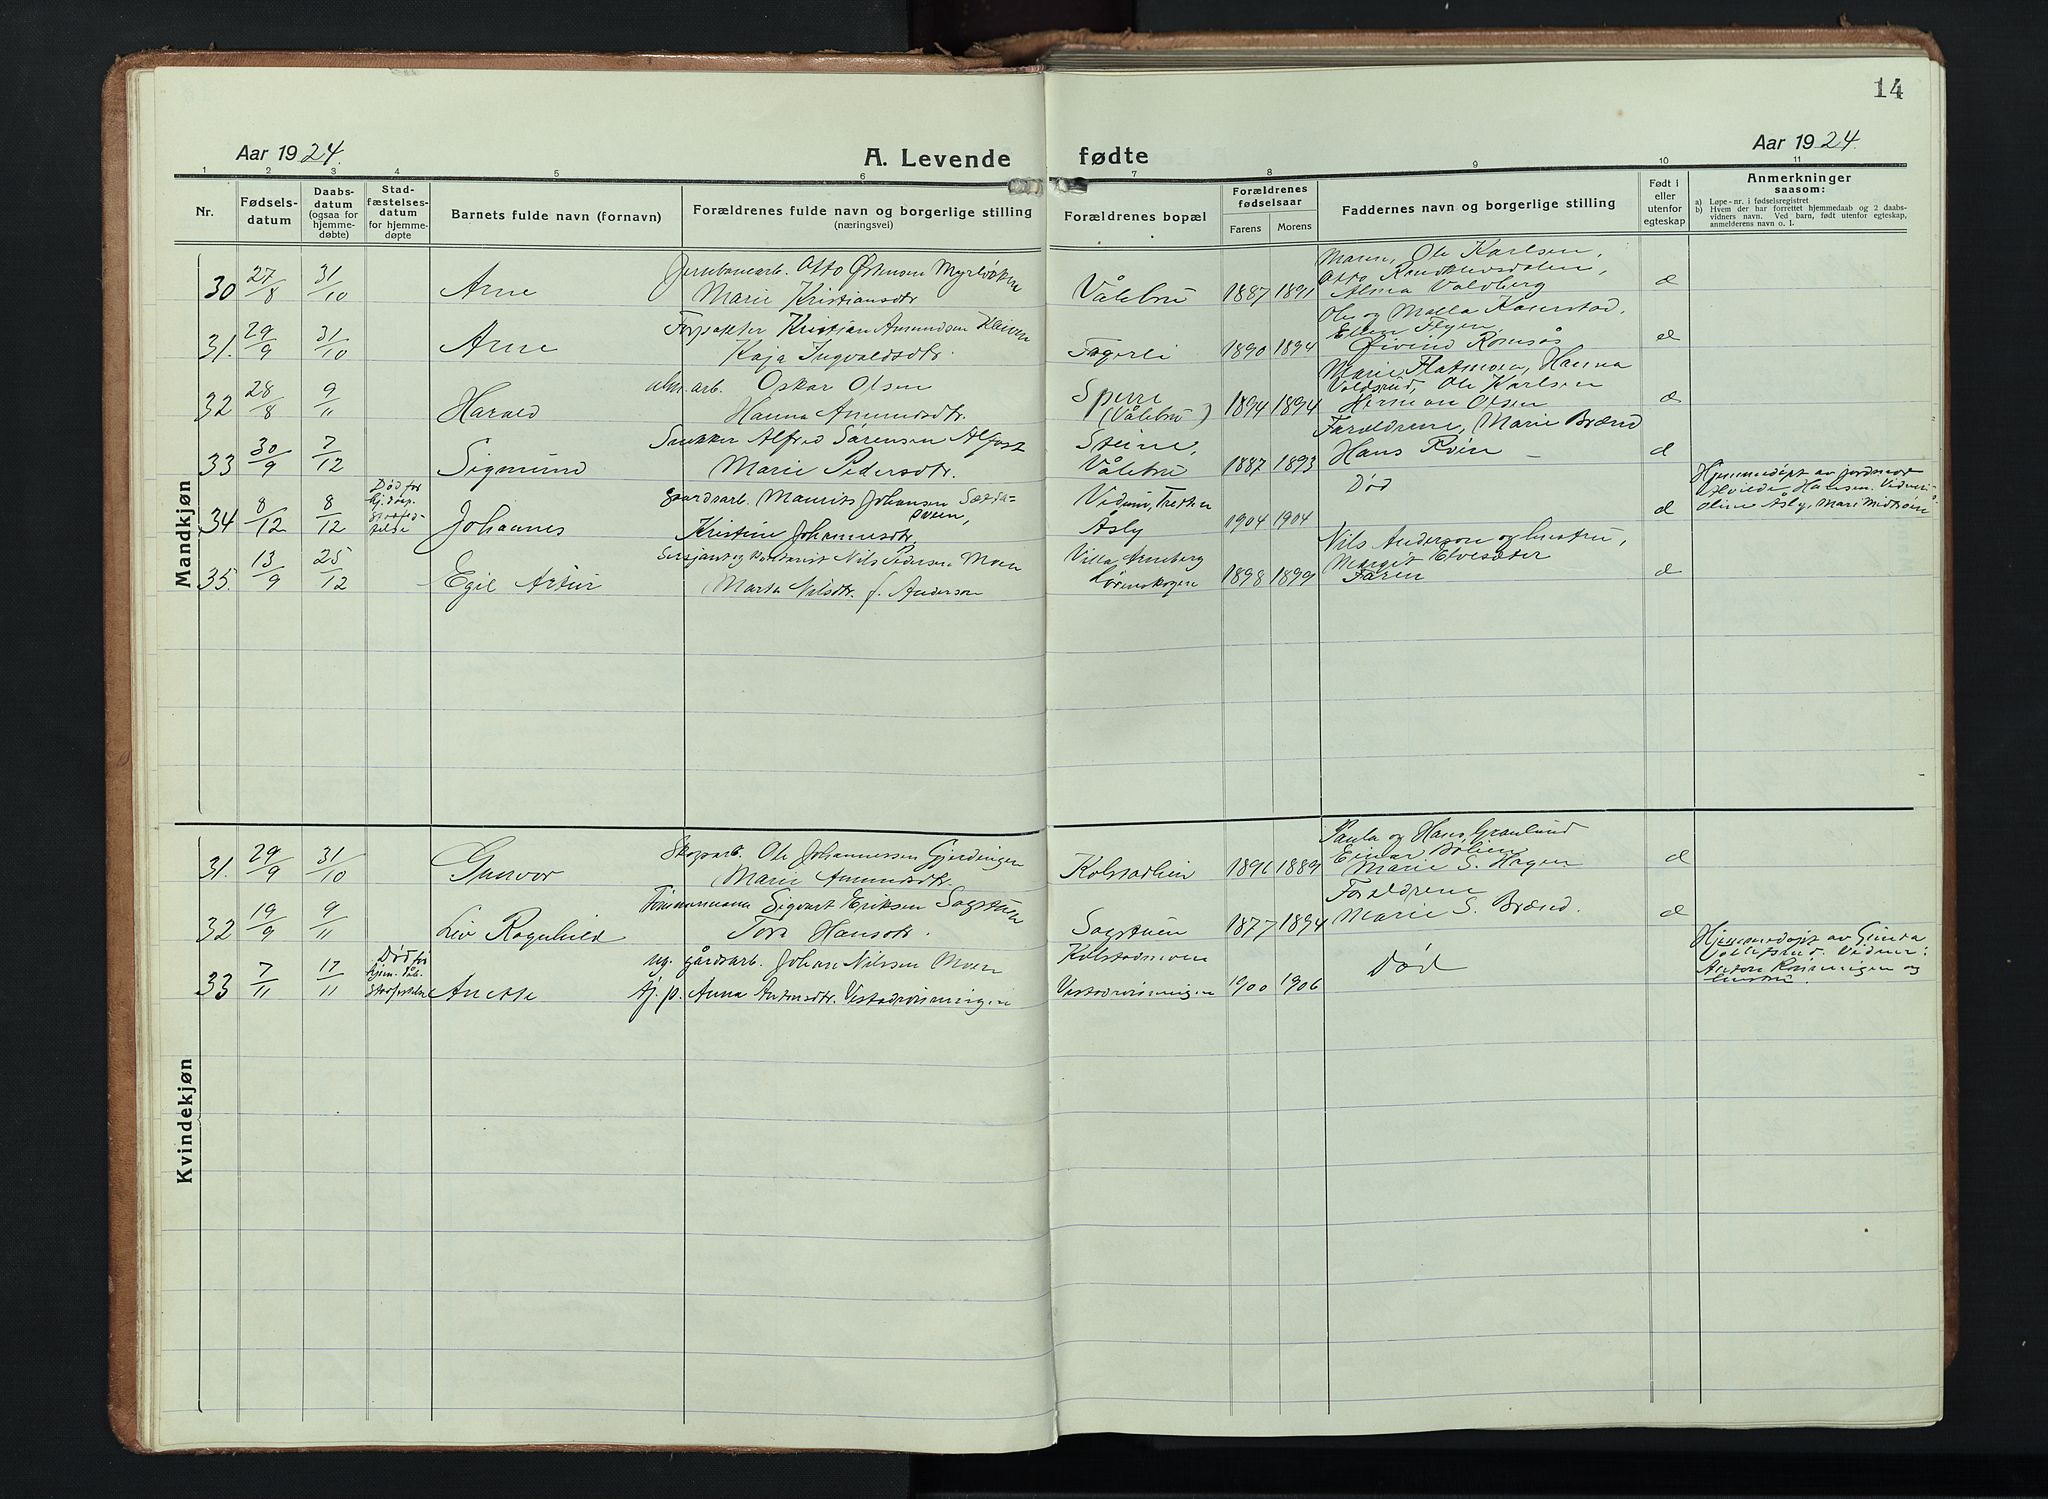 14
Aar 1924.
A. Levende fødte
Aar 1924.
1 2 3 4 5 6 7 8 9 10 11
Nr.
Fødselsdatum
Daabsdatum (ogsaa for hjemmedøbte)
Stadfæstelsesdatum for hjemmedøpte
Barnets fulde navn (fornavn)
Forældrenes fulde navn og borgerlige stilling (næringsvei)
Forældrenes bopæl
Forældrenes fødselsaar
Farens Morens
Faddernes navn og borgerlige stilling
Født i eller utenfor egteskap
Anmerkninger saasom:
a) Løpe-nr. i fødselsregistret
b) Hvem der har forrettet hjemmedaab og 2 daabsvidners navn. Ved barn, født utenfor egteskap, anmelderens navn o. l.
Mandkjøn
30 27/8 31/10 Arne Jernbanearb. Otto Marie Kristiansdtr Vålebru 1887 1891 Maren, Ole Karlsen, Otto Alma Valdberg d
31. 29/9 31/10 Arne Forpakter Kristian Amundsen Kleiven Kaja Ingvaldsdtr. Fagerli 1890 1894 Ole og Ellen Flyen, Øivind Romsås d
32 28/8 9/11 Harald alm. arb. Oskar Olsen Hanna Amundsdtr. Sperre (Vålebru) 1894 1894 Marie Flatmoen, Hanna Voldsrud, Ole Karlsen Herman Olsen d
33 30/9 7/12 Sigmund Snekker Alfred Sørensen Alfast Marie Pedersdtr. Steine, Vålebru 1887 1893 Forældrene, Marie Brænd Hans Roen d
34 8/12 8/12 Død før Johannes gaardsarb. Maurits Johansen Kristine Johannesdtr. Åsby 1904 1904 Død d Hjemmedøpt av jordmor Hansen. Oline Åsby, Mari Midtrøen
35. 13/9 25/12 Egil Artur Sersjant og Nils Pedersen Moen Marta Nilsdtr. f. Anderson Villa Arneberg Lørenskogen 1898 1899 Nils Anderson og hustru, Margit Elvesæter Faren d
Kvindekjøn
31. 29/9 31/10 Gunvor Skogarb. Ole Johannessen Gjerdingen Marie Amundsdtr. Kolstadlien 1896 1889 Paula og Hans Granlund Einar Bølien Marie S. Hagen d
32 19/9 9/11 Liv Ragnhild Tømmermann Sigvart Eriksen Sagstuen Tora Hansdtr. Sagstuen 1877 1894 Forældrene Marie S. Brænd. d
33 7/11 17/11 Død før Anette ug. gårdsarb. Johan Nilssen Moen Anna Antonsdtr. Vestadrønningen Kolstadmoen Vestadrønningen 1900 1906 Død Hjemmedøpt av Vidner: Anton Rønningen og hustru.